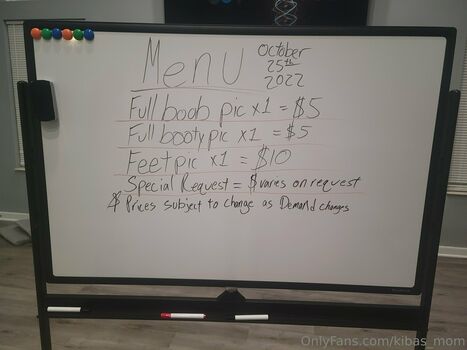 Menu
October
25th
2022
Full boob pic x1 = $5
Full booty pic x1 = $5
Feet pic x1 = $10
Special Request = $ varies on request
$ Prices subject to change as Demand changes
OnlyFans.com/kibas_mom